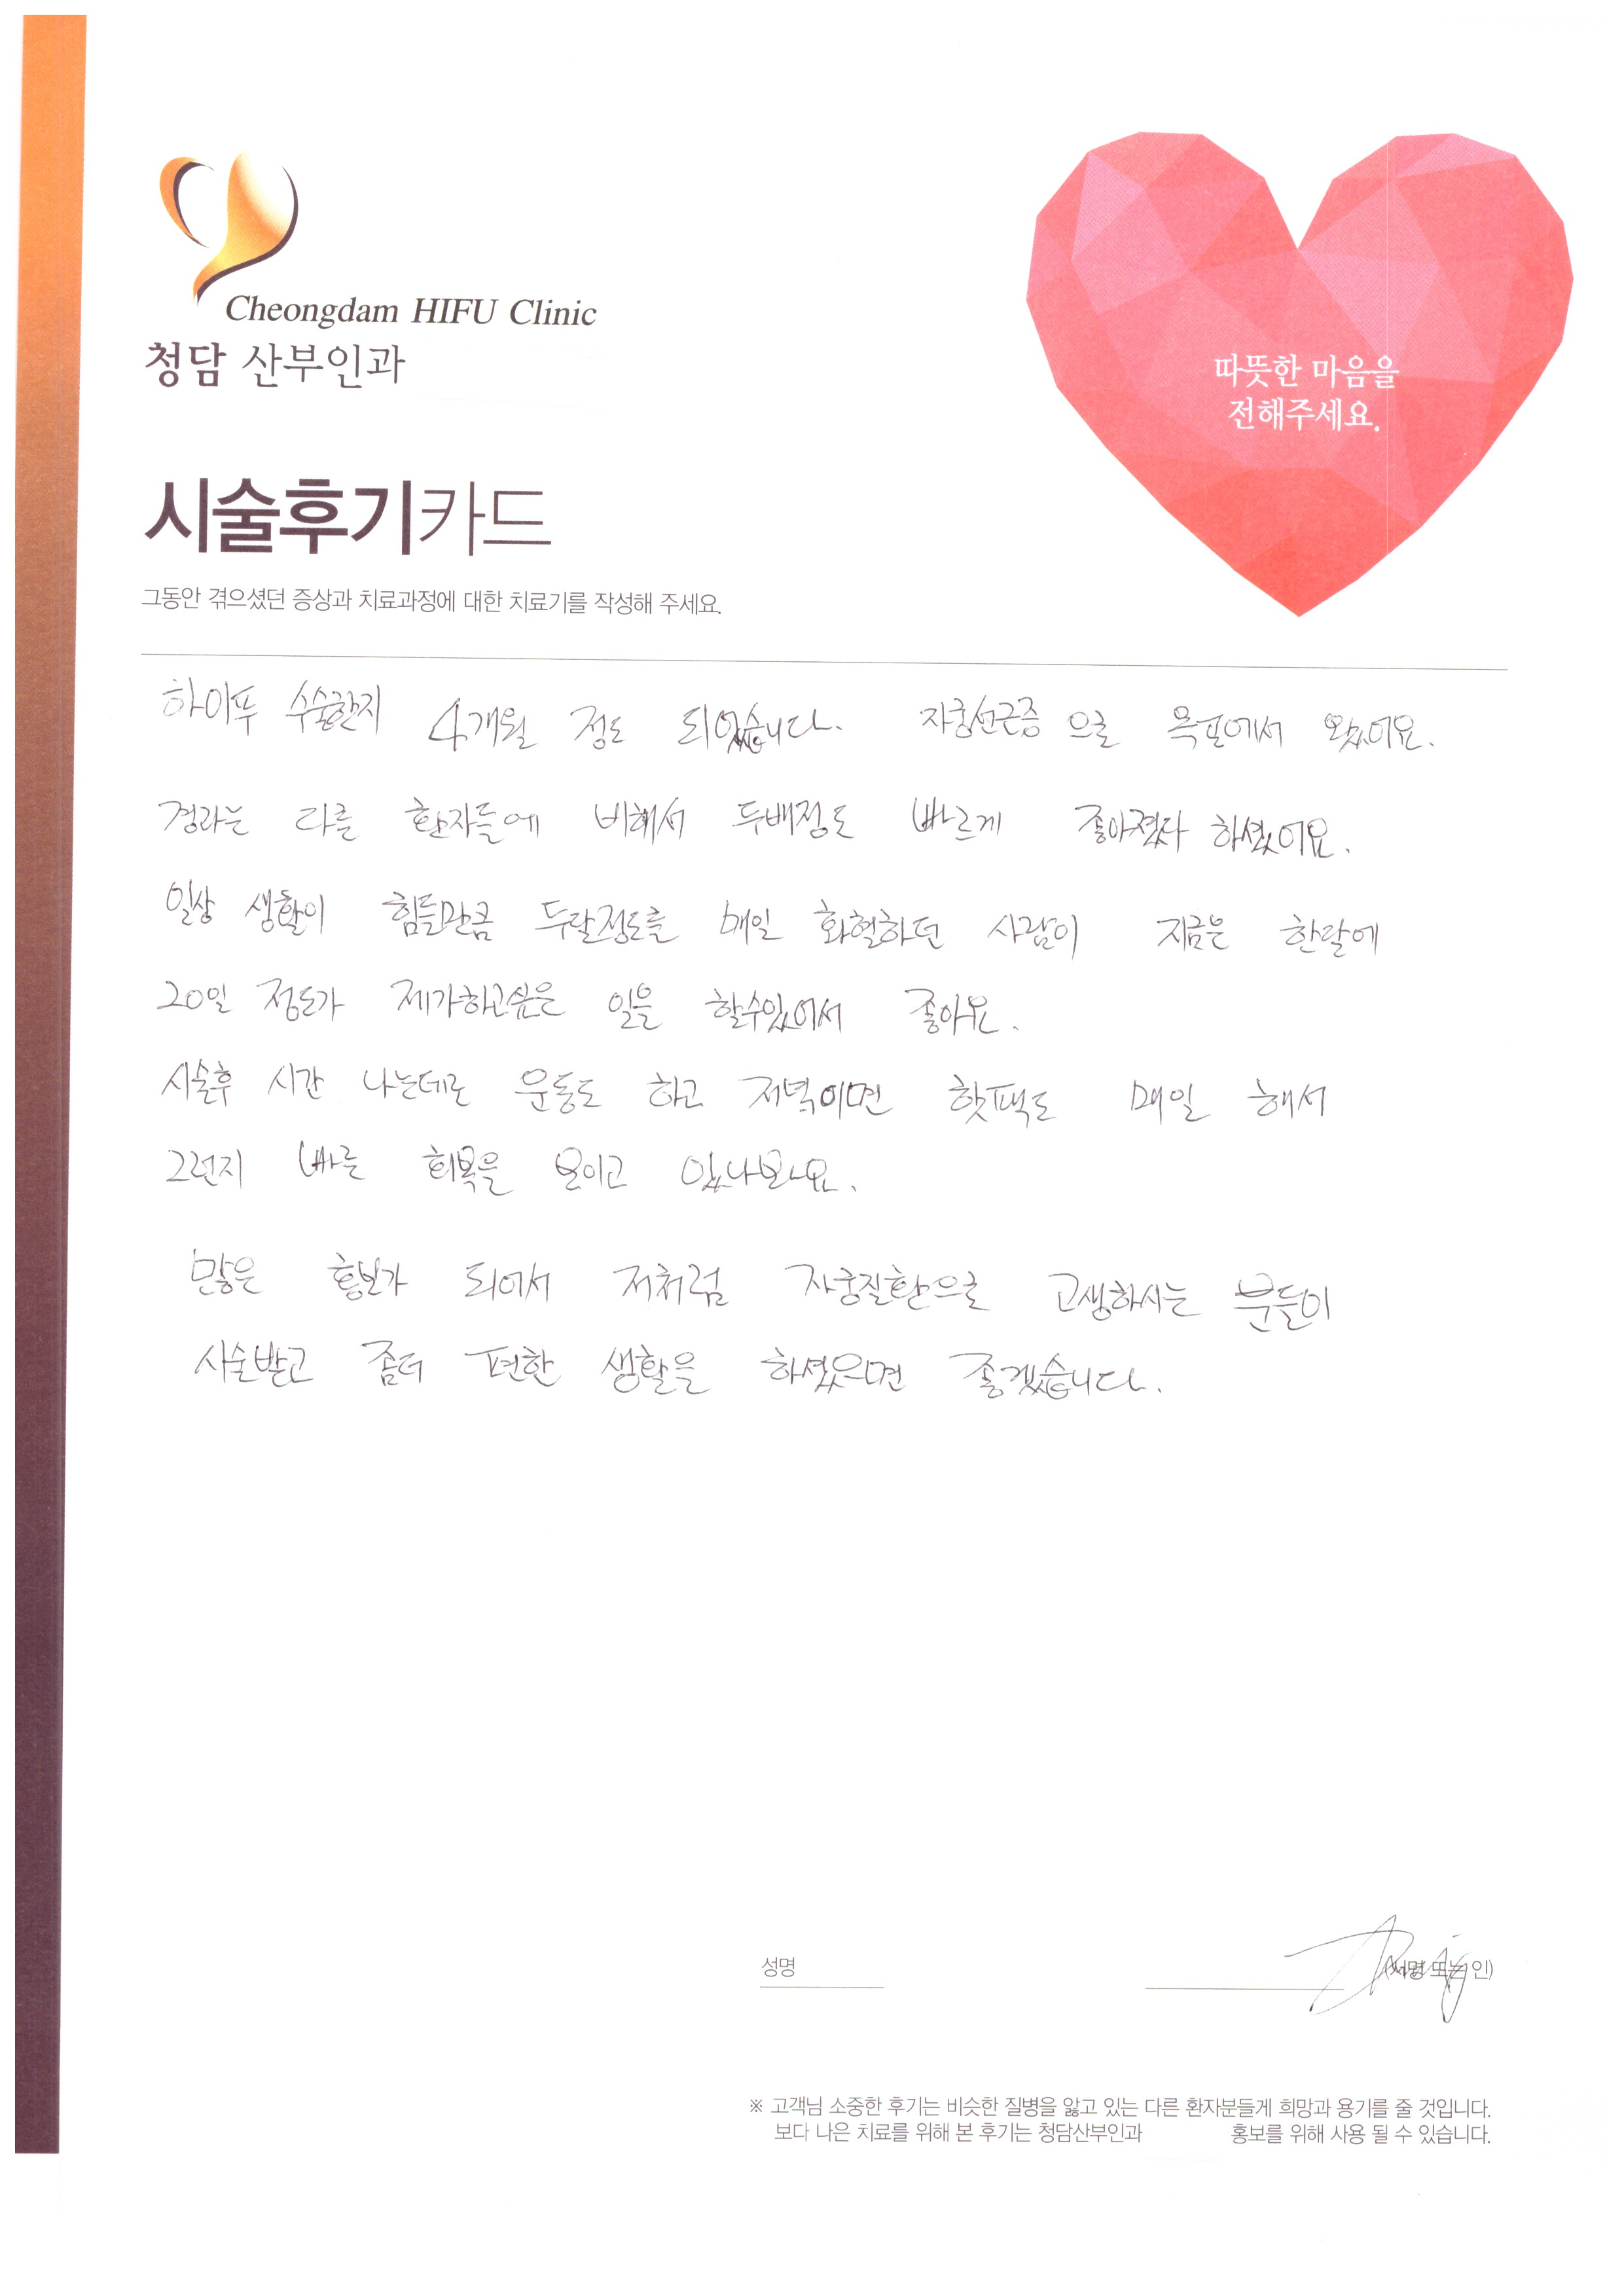 Cheongdam HIFU Clinic
청담 산부인과
따뜻한 마음을
전해주세요.
시술후기카드
그동안 겪으셨던 증상과 치료과정에 대한 치료기를 작성해 주세요.
하이푸 수술한지 4개월 정도 되었습니다. 자궁선근증 으로 목포에서 왔어요.
경과는 다른 환자들에 비해서 두배정도 빠르게 좋아졌다 하셨어요.
일상 생활이 힘들만큼 두달정도를 매일 하혈하던 사람이 지금은 한달에
20일 정도가 제가하고싶은 일을 할수있어서 좋아요.
시술후 시간 나는데로 운동도 하고 저녁이면 핫팩도 매일 해서
그런지 빠른 회복을 보이고 있나봐요.
많은 홍보가 되어서 저처럼 자궁질환으로 고생하시는 분들이
시술받고 좀더 편한 생활을 하셨으면 좋겠습니다.
성명 (서명 또는 인)
※ 고객님 소중한 후기는 비슷한 질병을 앓고 있는 다른 환자분들게 희망과 용기를 줄 것입니다.
보다 나은 치료를 위해 본 후기는 청담산부인과 홍보를 위해 사용 될 수 있습니다.